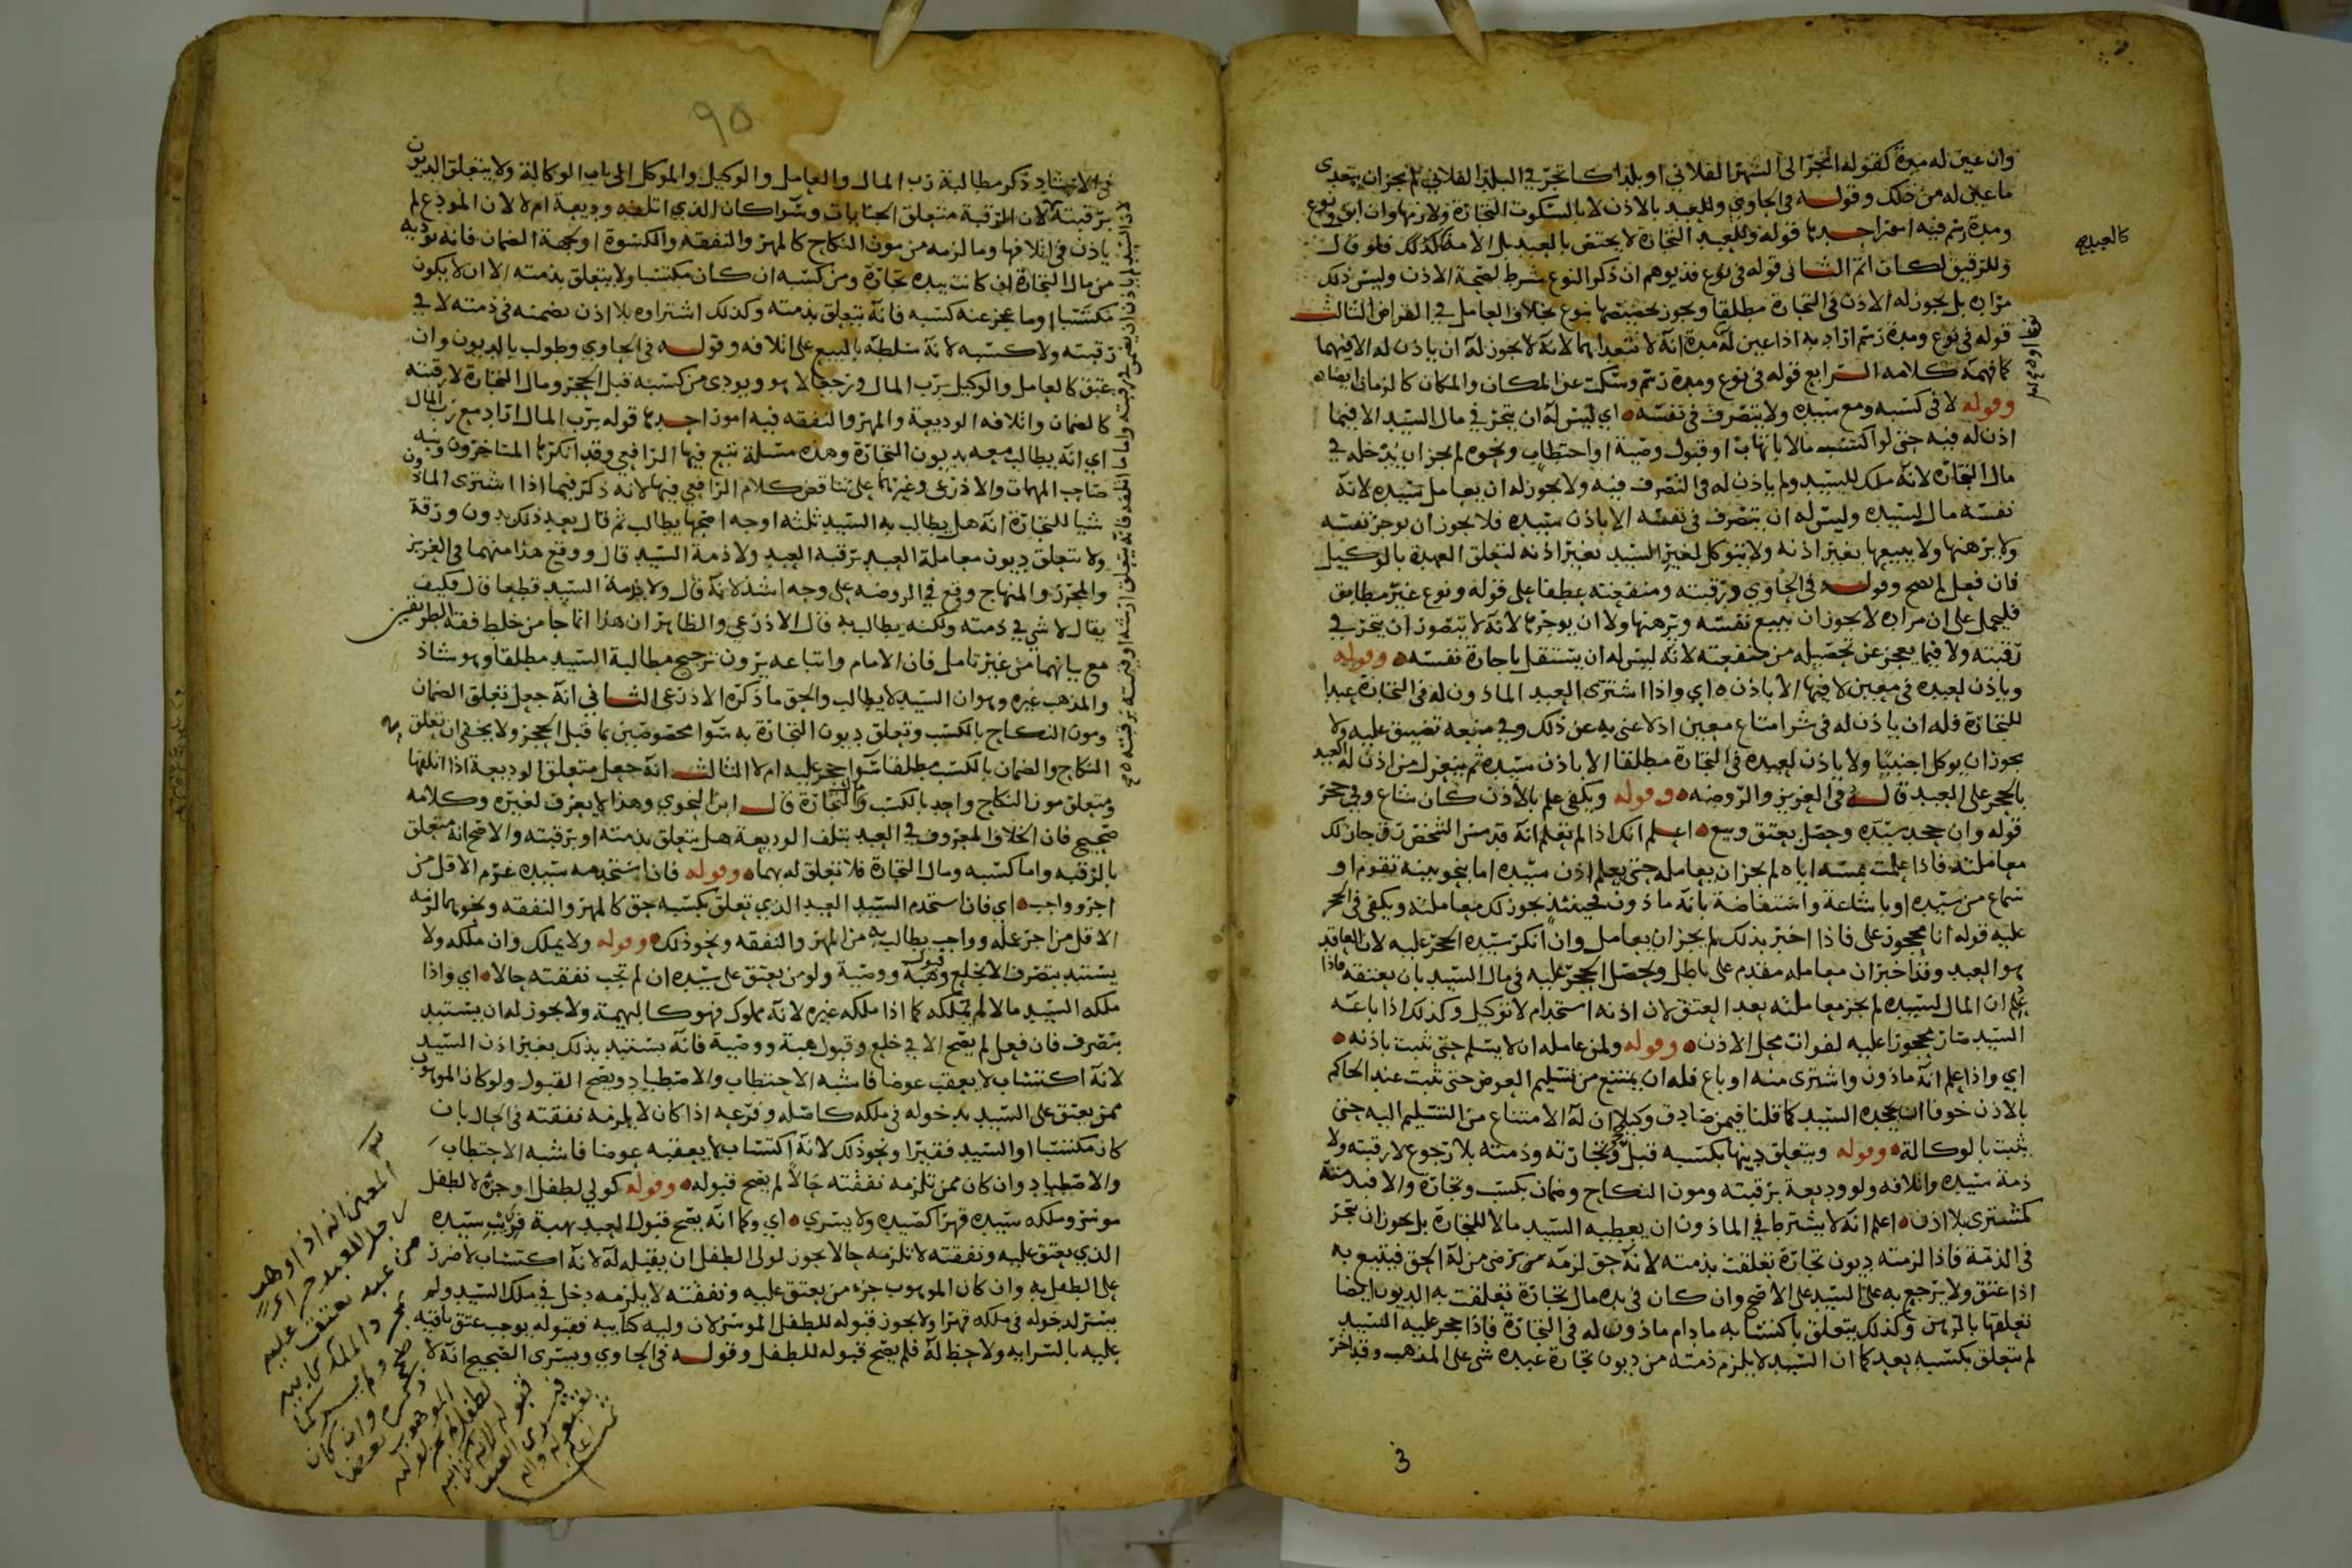 وان عين له مدة كقوله اتجر الى الشهر الفلاني او بلدا كاتجر في البلد الفلاني لم يجز ان يتعدى
ما عين له من ذلك وقوله في الحاوي وللعبد بالاذن لا بالسكوت التجارة ولازمها وان ابق ونوع
ومدة رسم فيه امور احدها قوله وللعبد التجارة لا يختص بالعبد بل الامة كذلك فلو قال
وللرقيق لكان اتم الثاني قوله في نوع قد يوهم ان ذكر النوع شرط لصحة الاذن وليس ذلك
مراده بل يجوز له الاذن في التجارة مطلقا ويجوز تخصيصها بنوع بخلاف العامل في القراض الثالث
قوله في نوع ومدة رسم اراد به اذا عين له مدة انه لا يتعداها لانه لا يجوز له ان ياذن له الا فيهما
كما فهمه كلامه الرابع قوله في نوع ومدة رسم وسكت عن المكان والمكان كالزمان ايضا
وقوله لا في كسبه ومع سيده ولا يتصرف في نفسه اي ليس له ان يتجر في مال السيد الا فيما
اذن له فيه حتى لو اكتسب مالا بانهاب او قبول وصية او احتطاب ونحوه لم يجز ان يدخله في
مال التجارة لانه ملك للسيد ولم ياذن له في التصرف فيه ولا يجوز له ان يعامل سيده لانه
نفسه مال لسيده وليس له ان يتصرف في نفسه الا باذن سيده فلا يجوز ان يوجر نفسه
ولا يرهنها ولا يبيعها بغير اذنه ولا يتوكل لغير السيد بغير اذنه لتعلق العهدة بالوكيل
فان فعل لم يصح وقوله في الحاوي ورقبته ومنفعته عطفا على قوله ونوع غير مطابق
فليحمل على ان مراده لا يجوز ان يبيع نفسه ويرهنها ولا ان يوجرها لانه لا يتصور ان يتجر في
رقبته ولا فيما يعجز عن تحصيله من منفعته لانه ليس له ان يستقل باجارة نفسه وقوله
وياذن لعبده في معين لا فيها الا باذن اي واذا اشترى العبد الماذون له في التجارة عبدا
للتجارة فله ان ياذن له في شرا متاع معين اذ لا غنى به عن ذلك وفي منعه تضييق عليه ولا
يجوز ان يوكل اجنبيا ولا ياذن لعبده في التجارة مطلقا الا باذن سيده ثم ينعزل من اذن له العبد
بالحجر على العبد قاله في العزيز والروضه وقوله ويكفي علم بالاذن كان شاع وفي حجر
قوله وان جحد سيده وحصل بعتق وبيع اعلم انك اذا لم تعلم انه قد مس الشخص رق جاز لك
معاملته فاذا علمت بمسه اياه لم يجز ان يعامله حتى يعلم اذن سيده اما بنحو بينة تقوم او
سماع من سيده او باشاعة واستفاضة بانه ماذون فحينئذ يجوز لك معاملته ويكفي في الحجر
عليه قوله انا محجور على فاذا اخبر بذلك لم يجز ان يعامل وان انكر سيده الحجر عليه لان العاقد
هو العبد وقد اخبر ان معامله مقدم على باطل ويحصل الحجر عليه في مال السيد بان يعتقه فاذا
علم ان المال لسيده لم يجز معاملته بعد العتق لان اذنه استخدام لا توكيل وكذلك اذا باعه
السيد صار محجورا عليه لفوات محل الاذن وقوله ولمن عامله ان لا يسلم حتى تثبت باذنه
اي واذا علم انه ماذون واشترى منه او باع فله ان يمتنع من تسليم العوض حتى تثبت عند الحاكم
بالاذن خوفا ان يجحده السيد كما قلنا فيمن صادق وكيلا ان له الامتناع من التسليم اليه حتى
يثبت بالوكالة وقوله ويتعلق دينها بكسبه قبل حجر وتجارته وذمته بلا رجوع لا رقبته ولا
ذمة سيده واتلافه ولو وديعة برقبته ومون النكاح وضمان بكسب وتجارة والا فبذمته
كمشترى بلا اذن اعلم انه لا يشترط في الماذون ان يعطيه السيد مالا للتجارة بل يجوز ان يتجر
في الذمة فاذا لزمته ديون تجارة تعلقت بذمته لانه حق لزمه من رضى من له الحق فيتبع به
اذا عتق ولا يرجع به على السيد على الاصح وان كان في يده مال تجارة تعلقت به الديون ايضا
تعلقها بالرهن وكذلك يتعلق باكتسابه مادام ماذون له في التجارة فاذا حجر عليه السيد
لم يتعلق بكسبه بعد كما ان السيد لا يلزم ذمته من ديون تجارة عبده شي على المذهب وقد اخر
كالعبد
3
95
في الارشاد ذكر مطالبة رب المال والعامل والوكيل والموكل الى باب الوكالة ولا يتعلق الديون
برقبته لان الرقبة متعلق الجنايات وسوا كان الذي اتلفه وديعة ام لا لان المودع لم
ياذن في اتلافها وما لزمه من مون النكاح كالمهر والنفقه والكسوة او بجهة الضمان فانه يوديه
من مال التجارة ان كانت بيده تجارة ومن كسبه ان كان مكتسبا ولا يتعلق بذمته الا ان لا يكون
مكتسبا وما عجز عنه كسبه فانه يتعلق بذمته وكذلك اشتراوه بلا اذن يضمنه في ذمته لا في
رقبته ولا كسبه لانه سلطه بالبيع على اتلافه وقوله في الحاوي وطولب بالديون وان
عتق كالعامل والوكيل برب المال ورجعا لا هو ويودى من كسبه قبل الحجر ومال التجارة لا رقبته
كالضمان واتلافه الوديعة والمهر والنفقه فيه امور احدها قوله برب المال اراد مع رب المال
اي انه يطالب معه بديون التجارة وهذه مسئلة تبع فيها الرافعي وقد انكرها المتاخرون ونبه
صاحب المهمات والاذرعي وغيرهما على تناقض كلام الرافعي فيها لانه ذكر فيما اذا اشترى الماذون
شيا للتجارة انه هل يطالب به السيد ثلثه اوجه اصحها يطالب ثم قال بعد ذلك بدون ورقة
ولا تتعلق ديون معاملة العبد برقبه العبد ولا ذمة السيد قال ووقع هذا منهما في العزيز
والمحرر والمنهاج وقع في الروضه على وجه اشد لانه قال ولا بذمة السيد قطعا قال فكيف
يقال لا شي في ذمته ولكنه يطالب به قال الاذرعي والظاهر ان هذا انما جا من خلط فقه الطريقين
مع بيانهما من غير تامل فان الامام واتباعه يرون ترجيح مطالبة السيد مطلقا وهو شاذ
والمذهب غيره وهو ان السيد لا يطالب والحق ما ذكره الاذرعي الثاني انه جعل تعلق الضمان
ومون النكاح بالكسب وتعلق ديون التجارة به سوا مخصوصين بما قبل الحجر ولا يخفى ان تعلق
النكاح والضمان بالكسب مطلقا سوا حجر عليه ام لا الثالث انه جعل متعلق الوديعة اذا اتلفها
ومتعلق مون النكاح واحد بالكسب ومال التجارة قال ابن النحوي وهذا لا يعرف لغيره وكلامه
صحيح فان الخلاف المعروف في العبد يتلف الوديعة هل يتعلق بذمته او برقبته والاصح انه متعلق
بالرقبه واما كسبه ومال التجارة فلا تعلق له بهما وقوله فان استخدمه سيده غرم الاقل من
اجر وواجب اي فان استخدم السيد العبد الذي تعلق بكسبه حق كالمهر والنفقه ونحوهما لزمه
الاقل من اجر عمله وواجب يطالب به من المهر والنفقه ونحو ذلك وقوله ولا يملك وان ملكه ولا
يستبد بتصرف الا بخلع وقبول هبة ووصية ولو من يعتق على سيده ان لم تجب نفقته حالا اي واذا
ملكه السيد مالا لم يملكه كما اذا ملكه غيره لانه مملوك فهو كالبهيمة ولا يجوز له ان يستبد
بتصرف فان فعل لم يصح الا في خلع وقبول هبة ووصية فانه يستبد بذلك بغير اذن السيد
لانه اكتساب لا يعقب عوضا فاشبه الاحتطاب والاصطياد ويصح القبول ولو كان الموهوب
ممن يعتق على السيد بدخوله في ملكه كاصله وفرعه اذا كان لا يلزمه نفقته في الحال بان
كان مكتسبا او السيد فقيرا ونحو ذلك لانه اكتساب لا يعقبه عوضا فاشبه الاحتطاب
والاصطياد وان كان ممن تلزمه نفقته حالا لم يصح قبوله وقوله كولي لطفل او جزه لا لطفل
موسر وملكه سيده قهرا كصيده ولا يسري اي وكما انه يصح قبول العبد بهبة قريب سيده
الذي يعتق عليه ونفقته لا تلزمه حالا يجوز لولى الطفل ان يقبله له لانه اكتساب لا ضرر
على الطفل به وان كان الموهوب جزه من يعتق عليه ونفقته لا يلزمه دخل في ملك السيد ولم
يسر لدخوله في ملكه قهرا ولا يجوز قبوله للطفل الموسر لان وليه كنايبه فقبوله يوجب عتق باقيه
عليه بالسرايه ولا حظ له فلم يصح قبوله للطفل وقوله في الحاوي ويسرى الصحيح انه لا